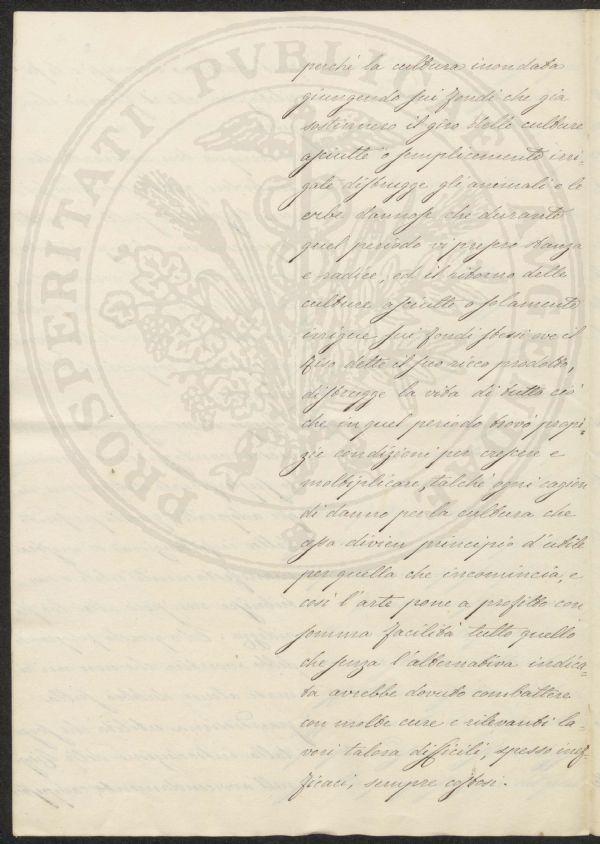 perchè la cultura inondata
giungendo sui fondi che già
sostennero il giro delle culture
asciutte o semplicemente irri-
gate distrugge gli animali e le
erbe dannose che durante
quel periodo vi presero stanza
e radice, ed il ritorno delle
culture asciutte o solamente
irrigue sui fondi stessi ove il
riso dette il suo ricco prodotto,
distrugge la vita di tutto ciò
che in quel periodo trovò propi-
zie condizioni per crescere e
moltiplicare, talchè ogni cagion
di danno per la cultura che
cessa divien principio d'utile
per quella che incomincia, e
così l'arte pone a profitto con
somma facilità tutto quello
che senza l'alternativa indica-
ta avrebbe dovuto combattere
con molte cure e rilevanti la-
vori talora difficili, spesso inef-
ficaci, sempre costosi.
PROSPERITATI PVBLICAE